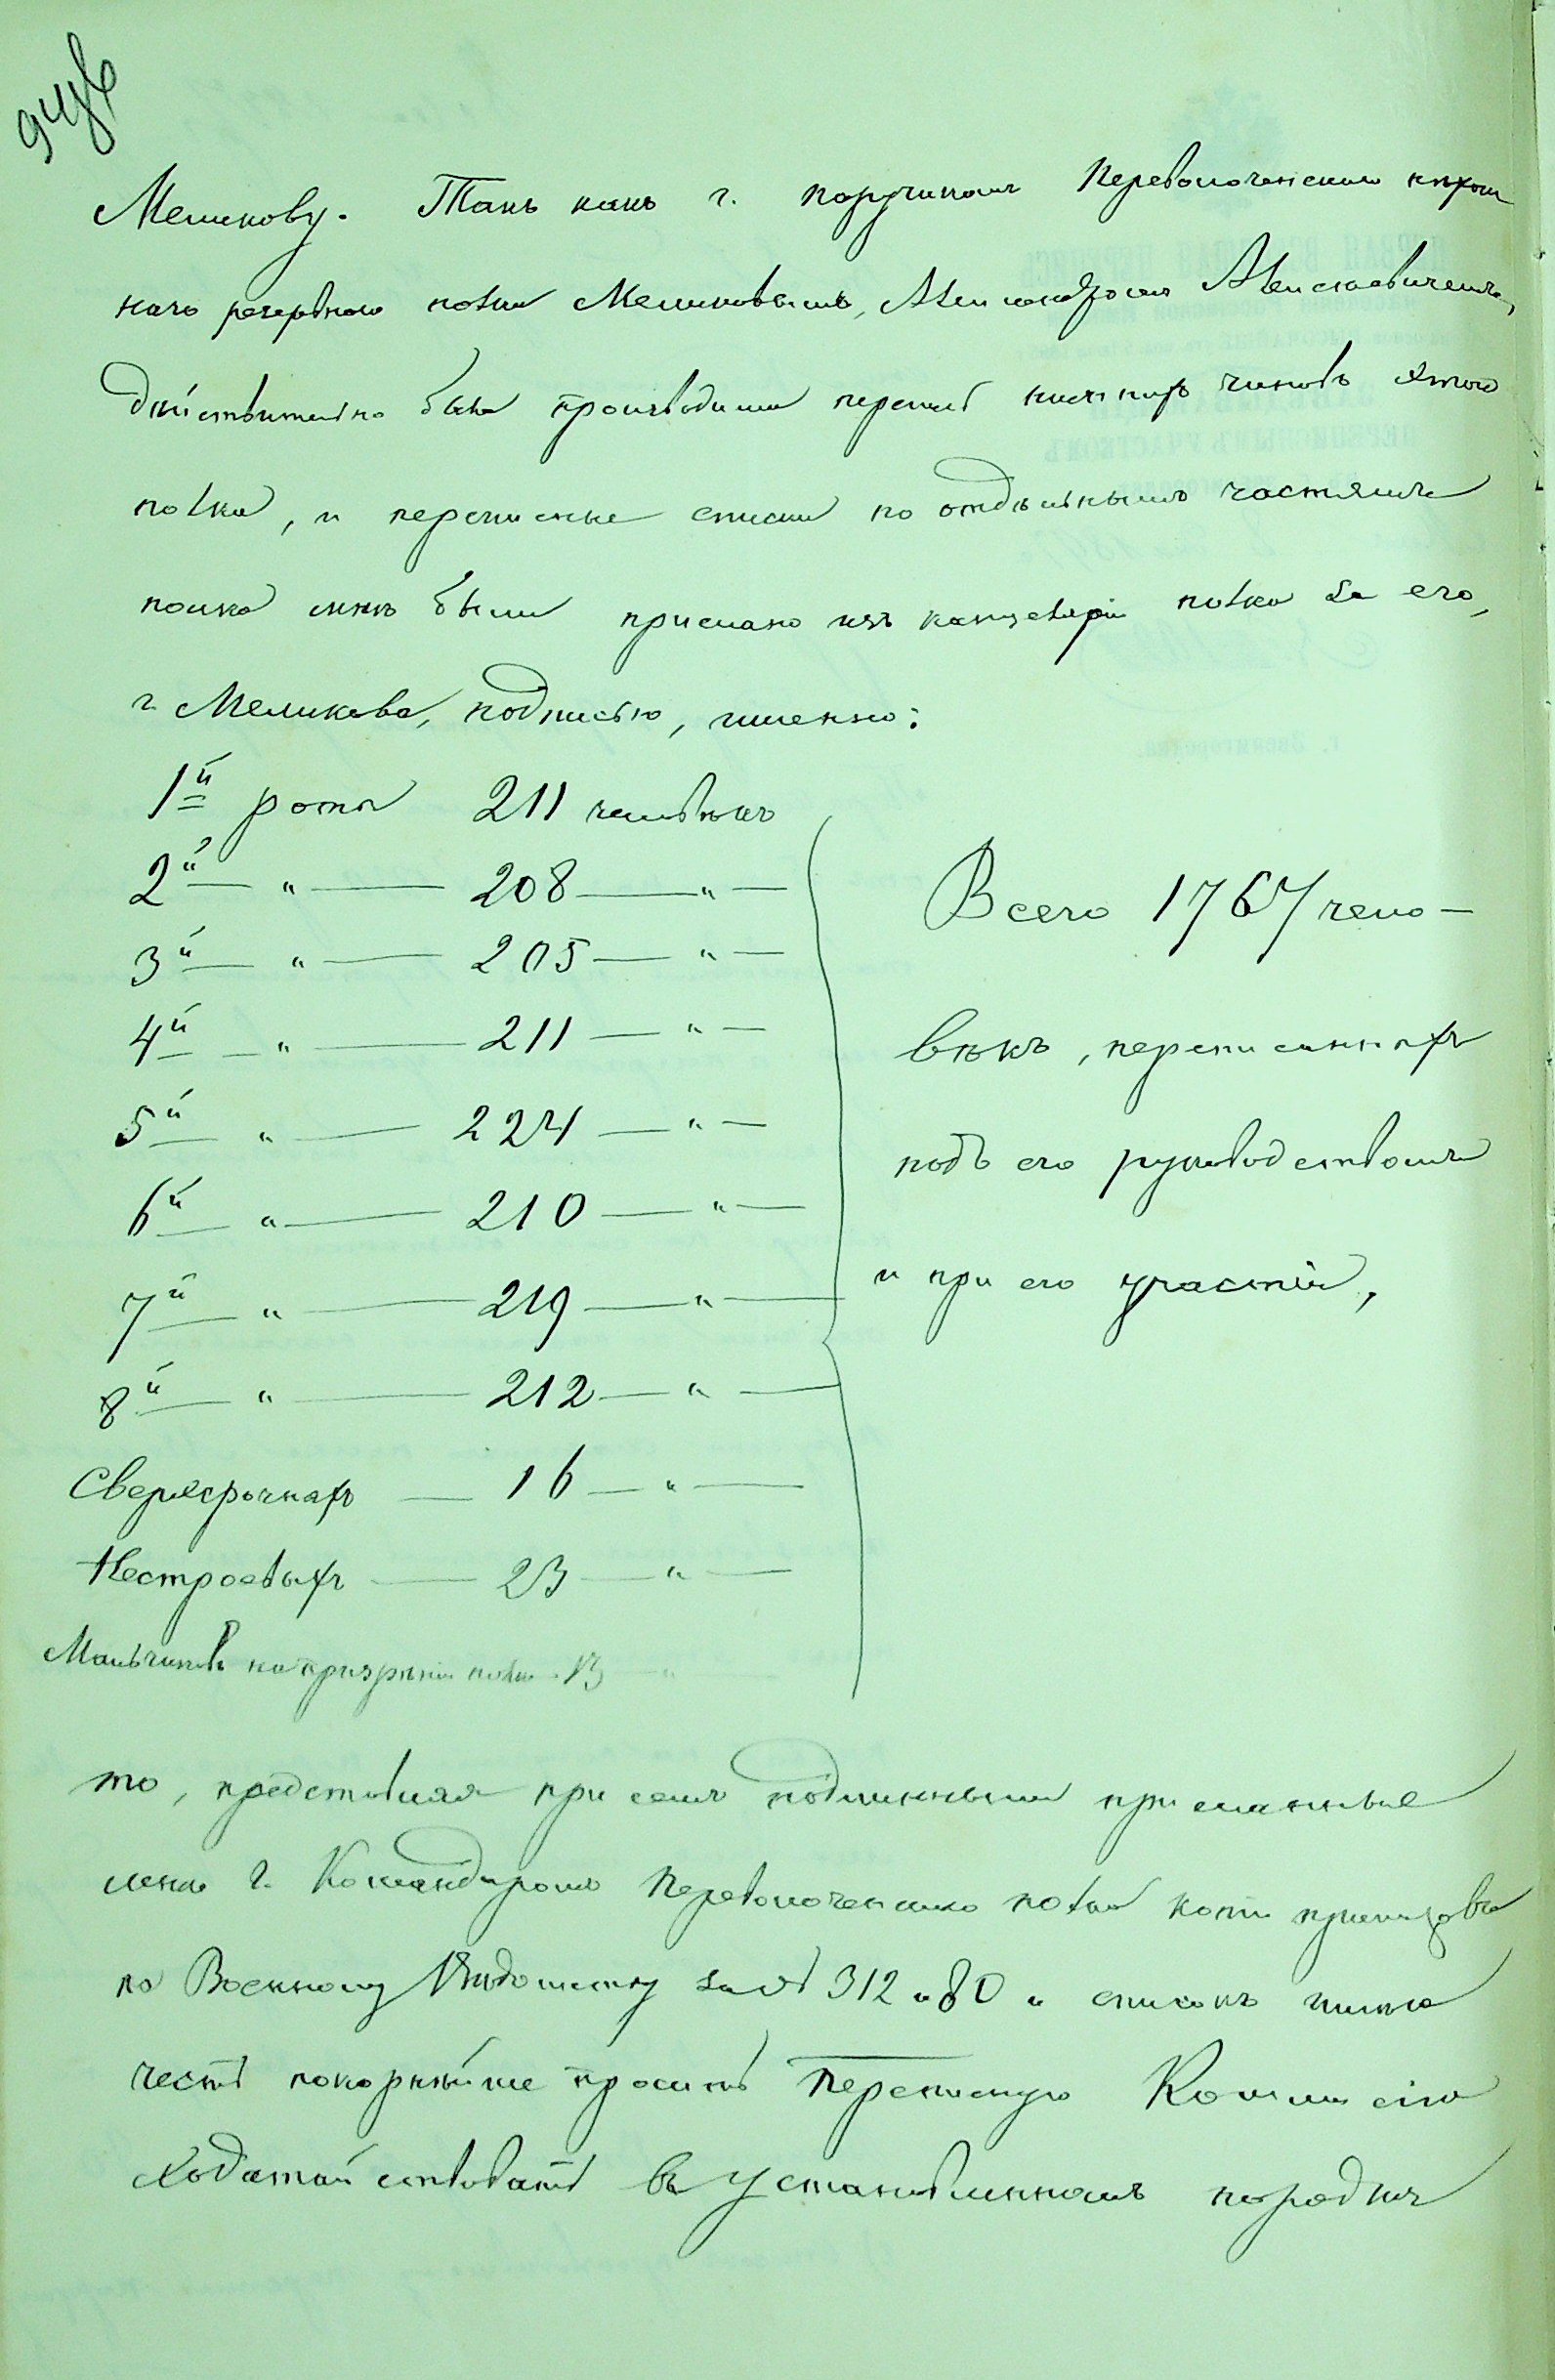 Меликову. Такъ какъ г. поручикомъ Переволоченскаго пѣхот
наго резервнаго полка Меликовымъ, Александромъ Алексѣевичемъ,
дѣйствительно была производима перепись нижнихъ чиновъ этого
полка, и переписные списки по отдѣльнымъ частямъ
полка мнѣ были присланы изъ канцеляріи полка за его,
г. Меликова, подписью, именно:
1й роты 211 человѣкъ
2й — " — 208 — " —
3й — " — 205 — " —
4й — " — 211 — " —
5й — " — 224 — " —
6й — " — 210 — " —
7й — " — 219 — " —
8й — " — 212 — " —
Сверхсрочныхъ — 16 — " —
Нестроевыхъ — 23 — " —
Мальчиковъ на призрѣніи полка — 13 — " —
Всего 1767 чело-
вѣкъ, переписанныхъ
подъ его руководствомъ
и при его участіи,
то, представляя при семъ подлинными присланные
мнѣ г. Командиромъ Переволоченскаго полка копіи приказовъ
по Военному Вѣдомству за № 312 и 80 и списокъ имѣю
честь покорнѣйше просить Переписную Коммисію
ходатайствовать въ установленномъ порядкѣ